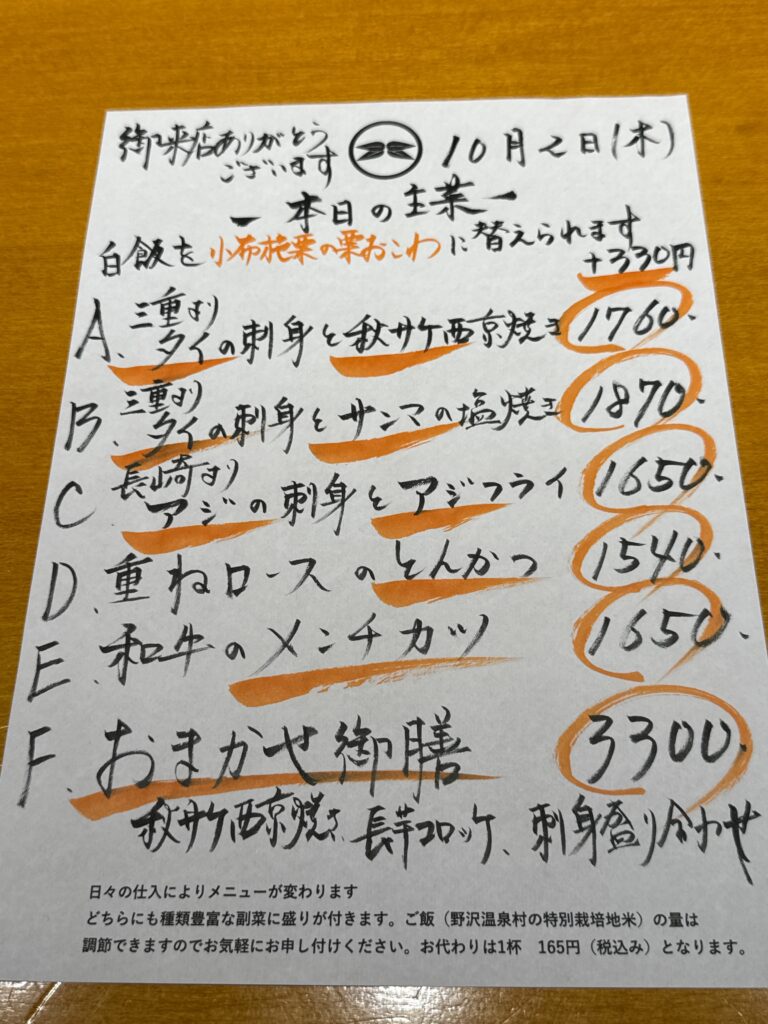 御来店ありがとう
ございます
10月2日(木)
ー本日の主菜ー
白飯を小布施栗の栗おこわに替えられます
+330円
A、三重より
タイの刺身と秋サケ西京焼き 1760.
B、三重より
タイの刺身とサンマの塩焼き 1870.
C 長崎より
アジの刺身とアジフライ 1650.
D、重ねロースのとんかつ 1540.
E、和牛のメンチカツ 1650.
F、おまかせ御膳 3300.
秋サケ西京焼き、長芋コロッケ、刺身盛り合わせ
日々の仕入によりメニューが変わります
どちらにも種類豊富な副菜に盛りが付きます。ご飯（野沢温泉村の特別栽培地米）の量は
調節できますのでお気軽にお申し付けください。お代わりは1杯　165円（税込み）となります。